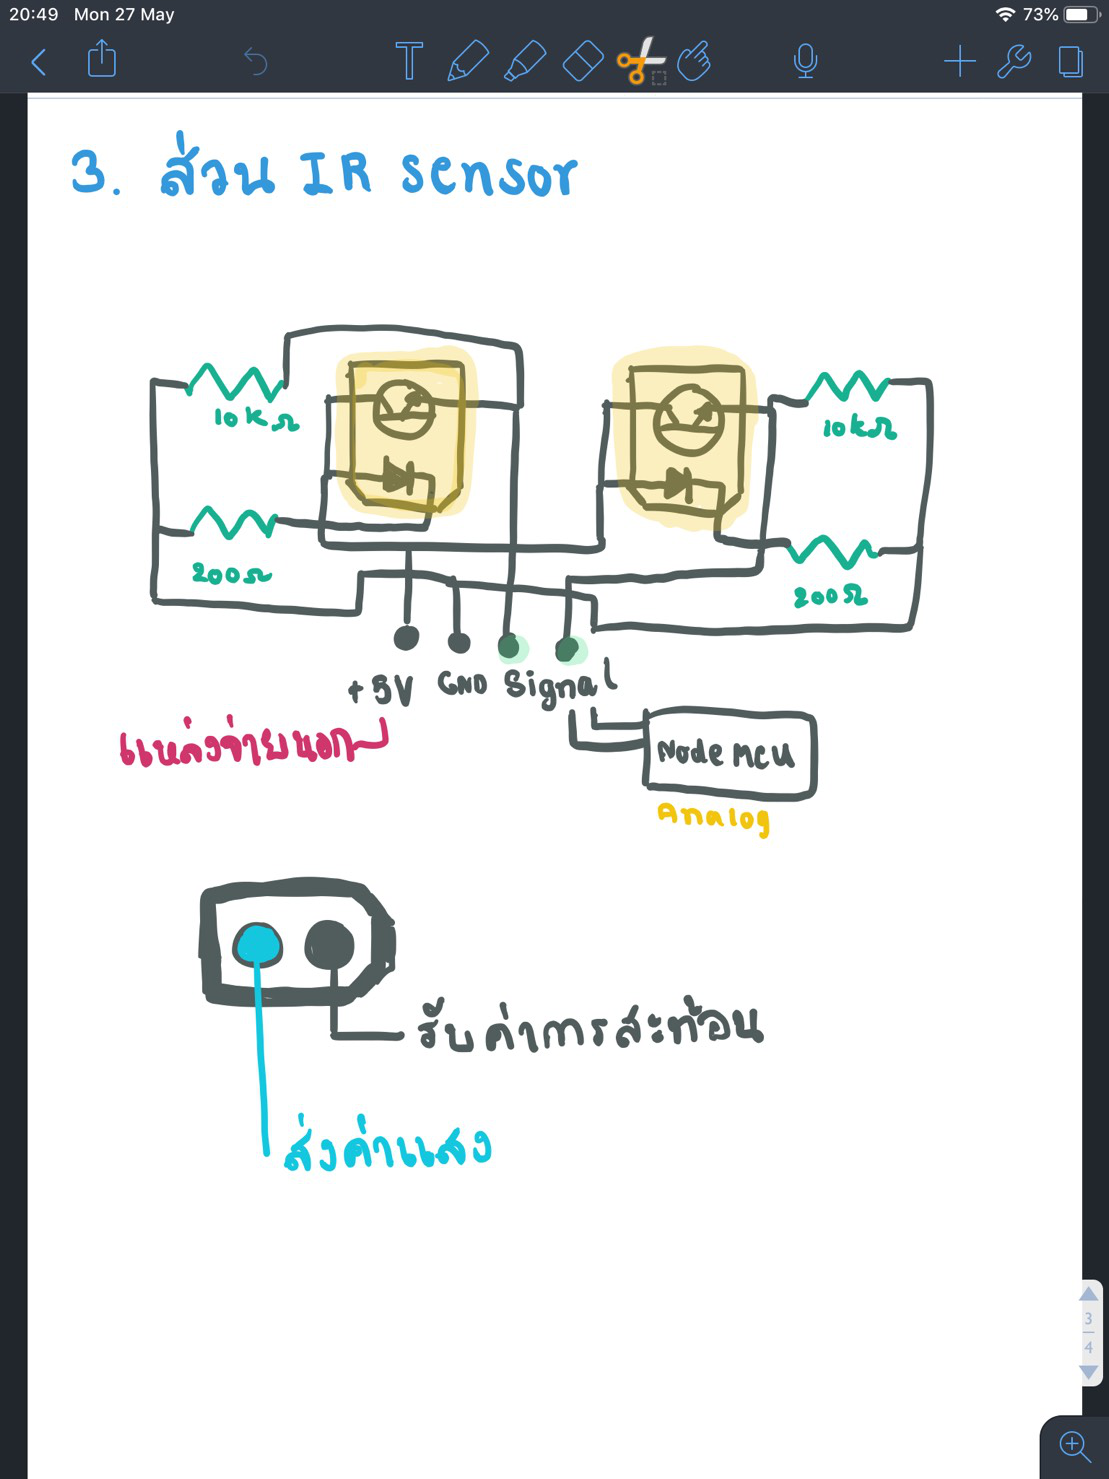 20:49 Mon 27 May 73%
3. ส่วน IR sensor
10kΩ
10kΩ
200Ω
200Ω
+5V GND Signal
แหล่งจ่ายนอก
Node MCU
Analog
รับค่าการสะท้อน
ส่งค่าแสง
3
4